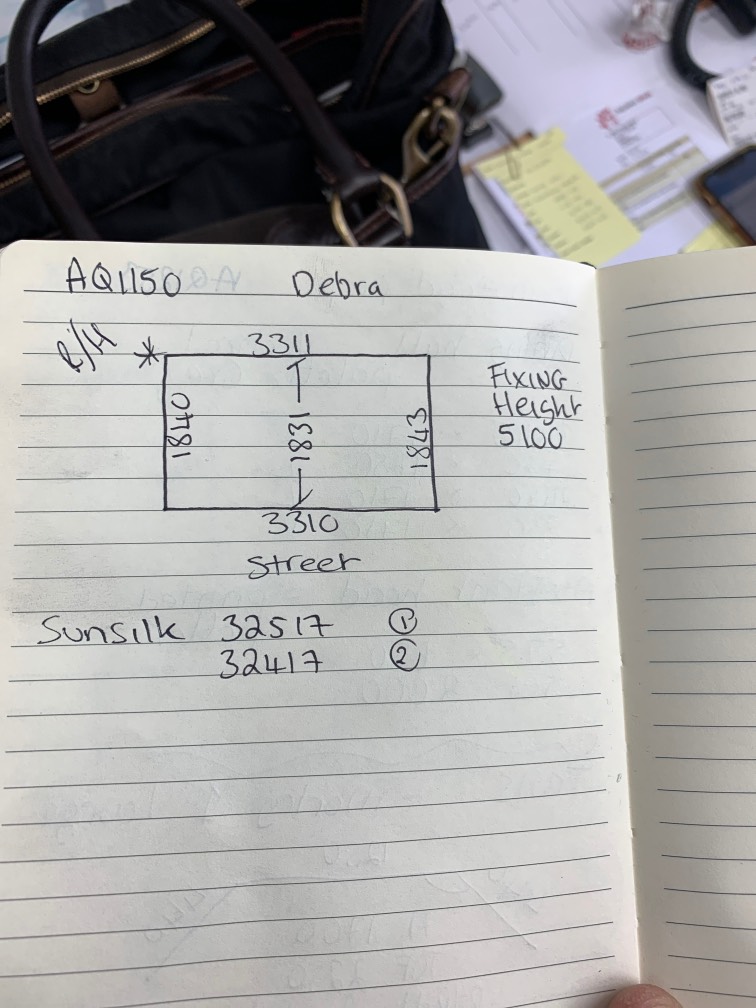 AQ1150 Debra
R/H * 3311
1840 1831 1843
FIXING
Height
5100
3310
Street
Sunsilk 32517 ①
32417 ②